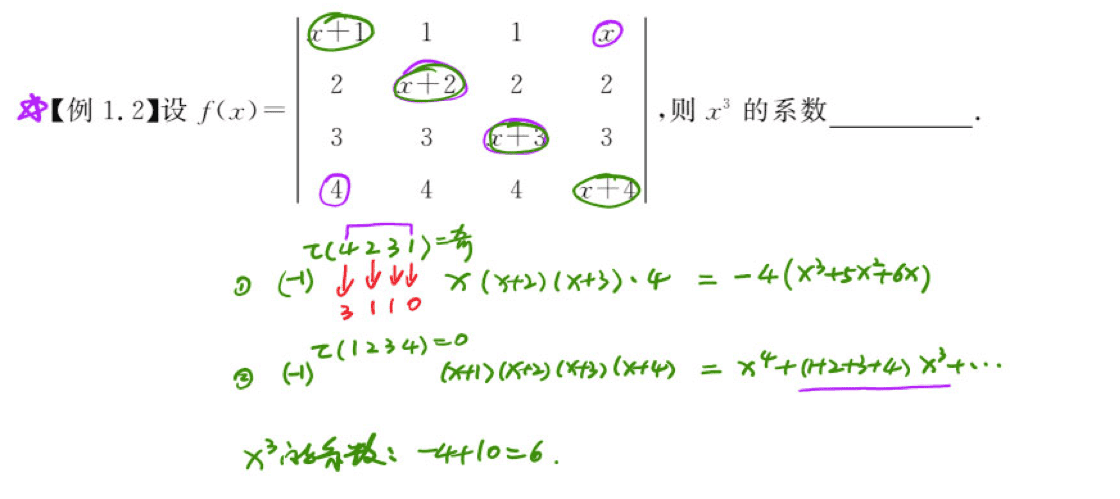 ☆【例 1.2】设 f(x) = | x+1 1 1 x |
| 2 x+2 2 2 |
| 3 3 x+3 3 |
| 4 4 4 x+4 | ,则 x³ 的系数________.
① (-1)^τ(4231)=奇 x(x+2)(x+3)·4 = -4(x³+5x²+6x)
↓↓↓↓
3 1 1 0
② (-1)^τ(1234)=0 (x+1)(x+2)(x+3)(x+4) = x⁴+(1+2+3+4)x³+···
x³的系数: -4+10=6.